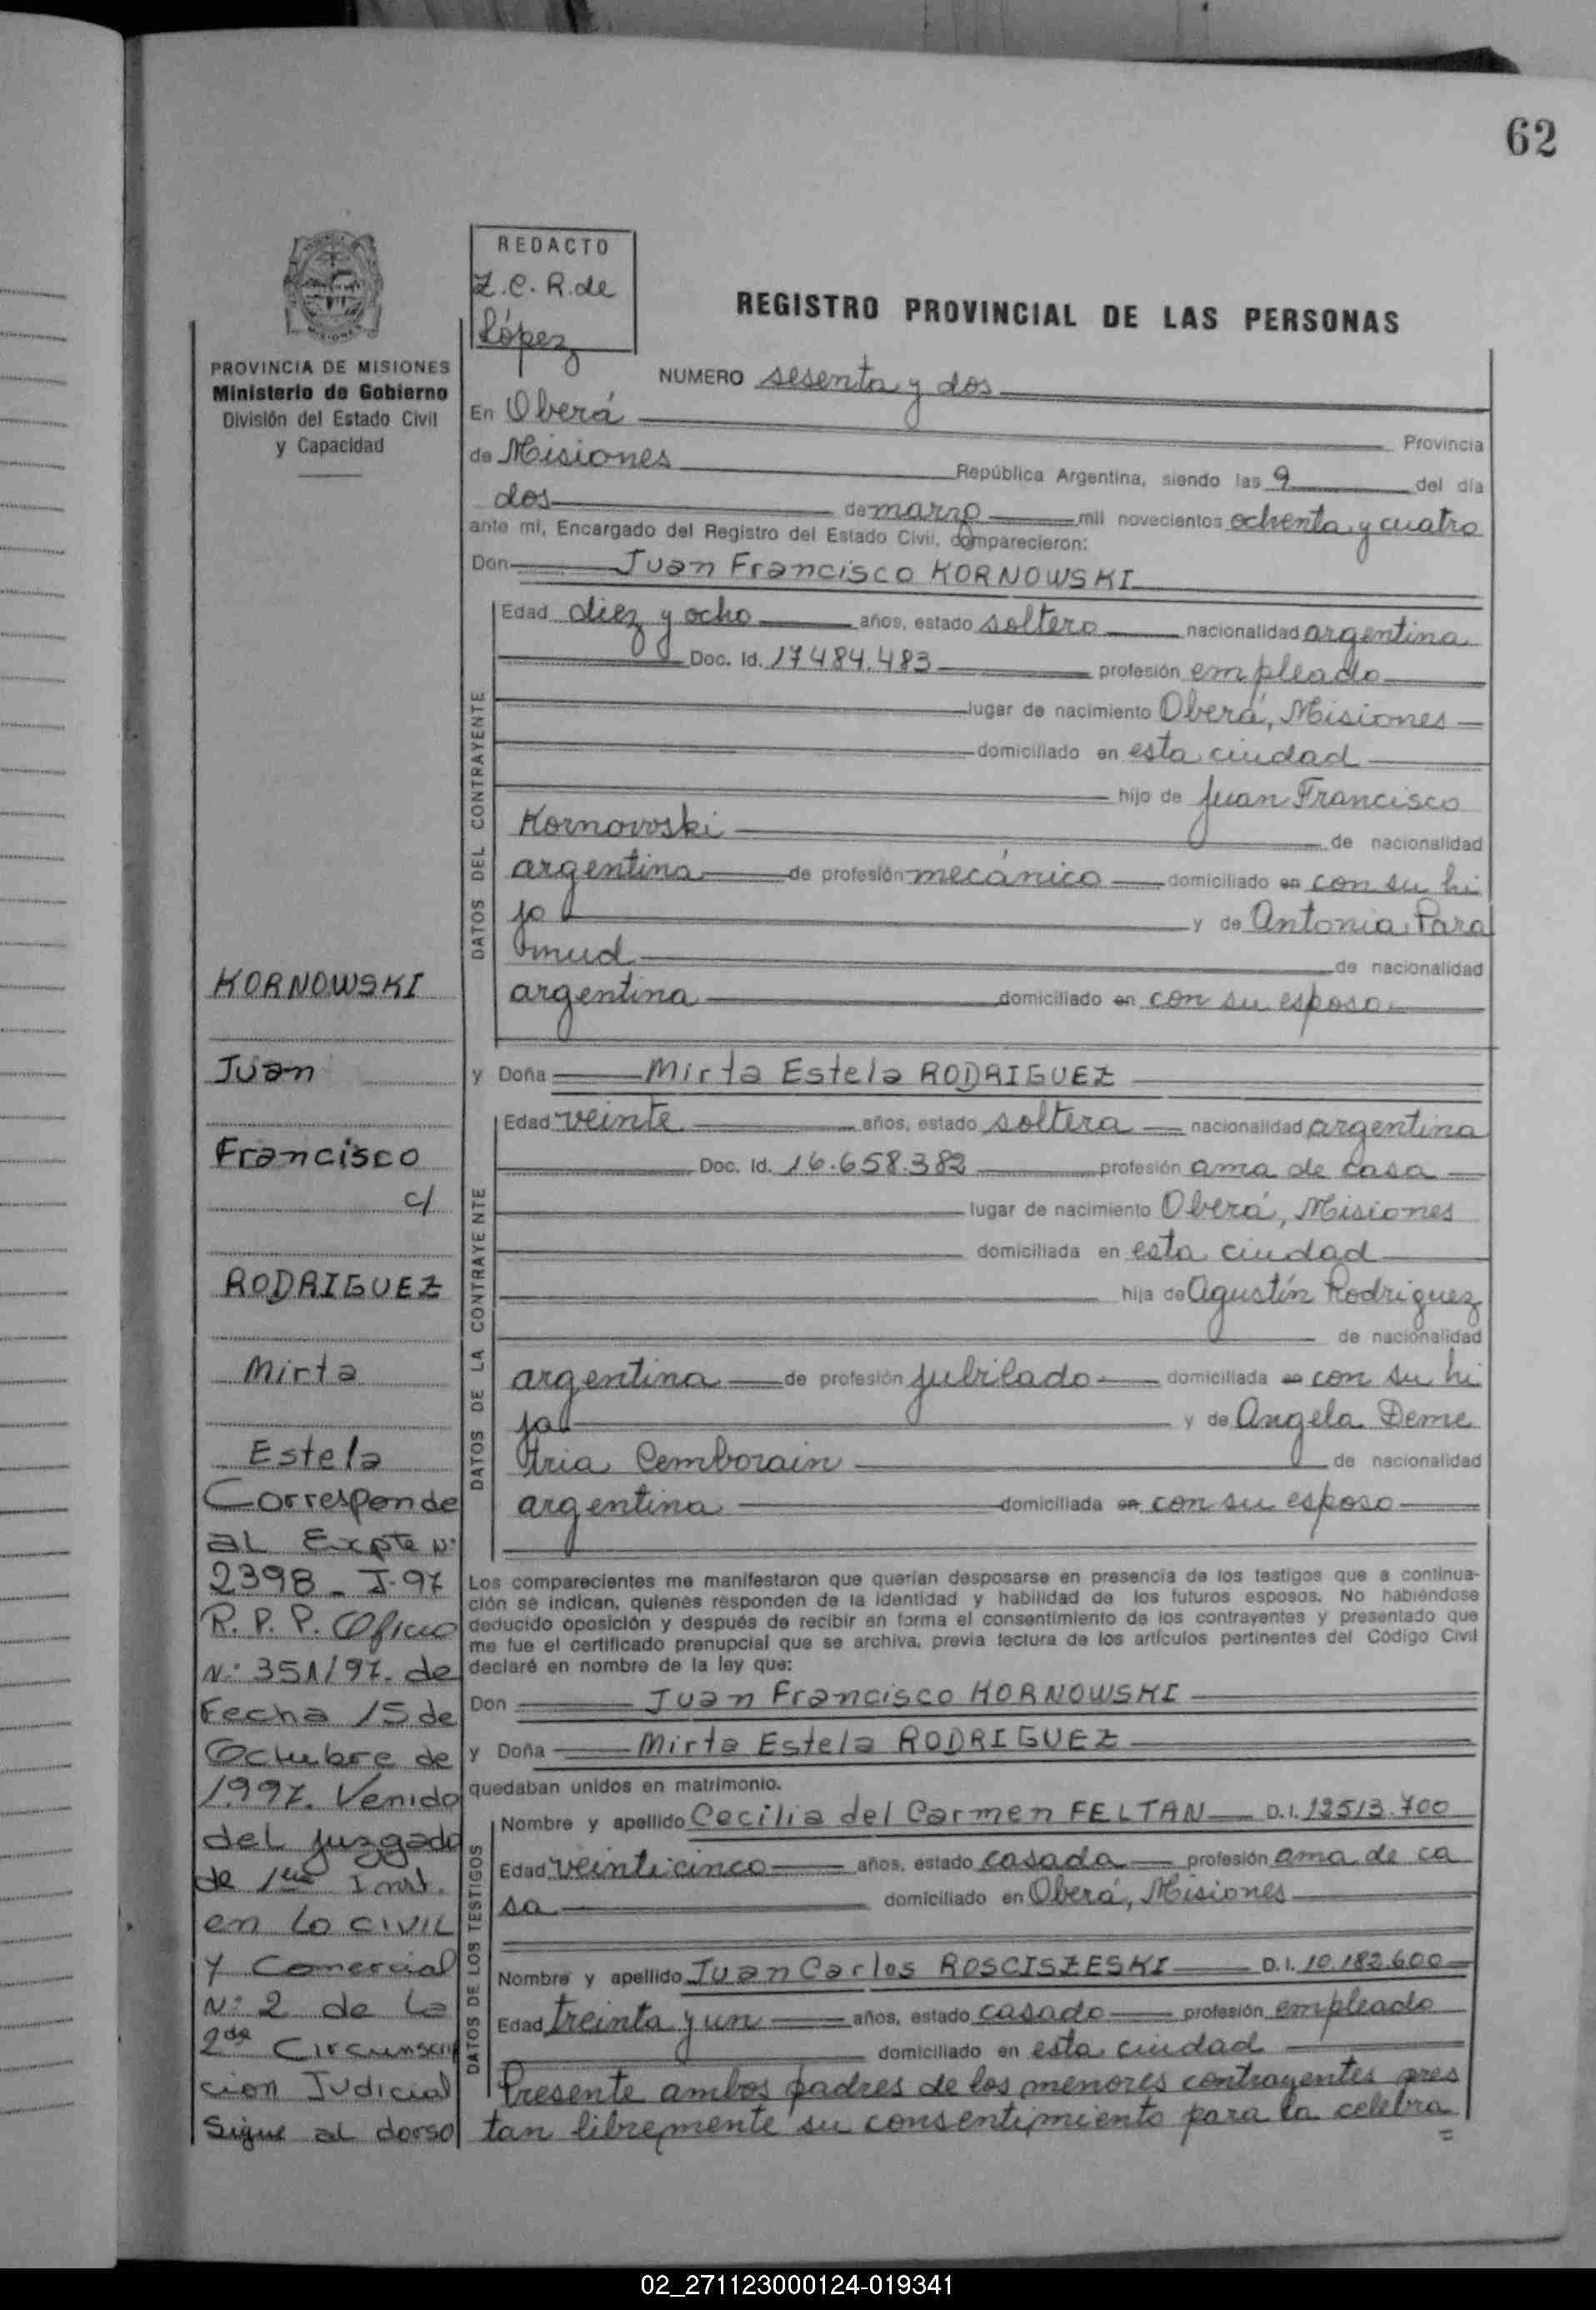 62
REDACTO
Z.C.R. de
López
REGISTRO PROVINCIAL DE LAS PERSONAS
PROVINCIA DE MISIONES
Ministerio de Gobierno
División del Estado Civil
y Capacidad
NUMERO sesenta y dos
En Oberá Provincia
de Misiones República Argentina, siendo las 9 del día
dos de marzo mil novecientos ochenta y cuatro
ante mi, Encargado del Registro del Estado Civil, comparecieron:
Don Juan Francisco KORNOWSKI
DATOS DEL CONTRAYENTE
Edad diez y ocho años, estado soltero nacionalidad argentina
Doc. Id. 17484.483 profesión empleado
lugar de nacimiento Oberá, Misiones
domiciliado en esta ciudad
hijo de Juan Francisco
Kornowski de nacionalidad
argentina de profesión mecánico domiciliado en con su hi
jo y de Antonia Para
mud de nacionalidad
argentina domiciliado en con su esposo
y Doña Mirta Estela RODRIGUEZ
DATOS DE LA CONTRAYENTE
Edad veinte años, estado soltera nacionalidad argentina
Doc. Id. 16.658.382 profesión ama de casa
lugar de nacimiento Oberá, Misiones
domiciliada en esta ciudad
hija de Agustín Rodriguez
de nacionalidad
argentina de profesión jubilado domiciliada en con su hi
ja y de Angela Deme
tria Cemborain de nacionalidad
argentina domiciliada en con su esposo
Los comparecientes me manifestaron que querían desposarse en presencia de los testigos que a continua-
ción se indican, quienes responden de la identidad y habilidad de los futuros esposos. No habiéndose
deducido oposición y después de recibir en forma el consentimiento de los contrayentes y presentado que
me fue el certificado prenupcial que se archiva, previa lectura de los artículos pertinentes del Código Civil
declaré en nombre de la ley que:
Don Juan Francisco KORNOWSKI
y Doña Mirta Estela RODRIGUEZ
quedaban unidos en matrimonio.
DATOS DE LOS TESTIGOS
Nombre y apellido Cecilia del Carmen FELTAN D.I. 12513.700
Edad veinticinco años, estado casada profesión ama de ca
sa domiciliado en Oberá, Misiones
Nombre y apellido Juan Carlos ROSCISZESKI D.I. 10.182.600
Edad treinta y un años, estado casado profesión empleado
domiciliado en esta ciudad
Presente ambos padres de los menores contrayentes pres
tan libremente su consentimiento para la celebra
=
KORNOWSKI
Juan
Francisco
c/
RODRIGUEZ
Mirta
Estela
Corresponde
al Expte N:
2398 - I-97
R.P.P. Oficio
N: 351/97. de
Fecha 15 de
Octubre de
1.997. Venido
del juzgado
de 1era Inst.
en lo civil
y Comercial
N: 2 de la
2da Circunscrip
cion Judicial
Sigue al dorso
02_271123000124-019341